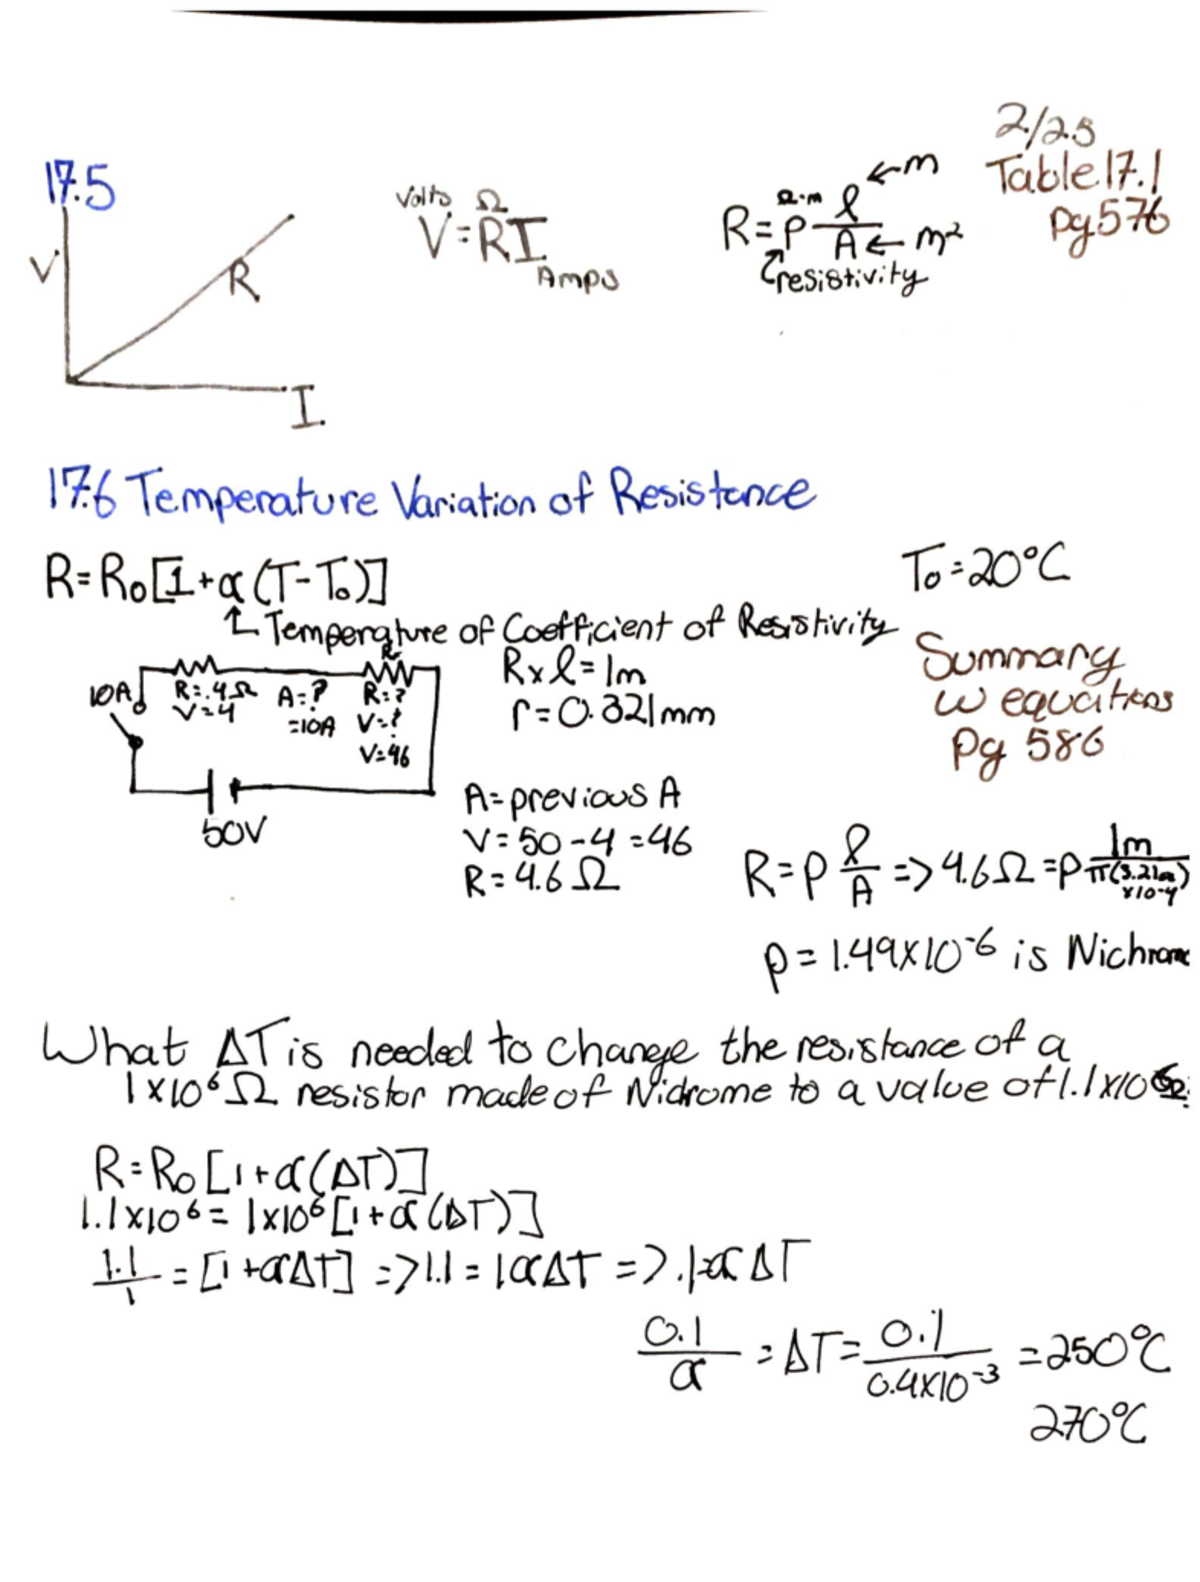 2/25
17.5
Table 17.1
pg 576
V
R
I
Volts Ω
V=RI
Amps
Ω·m
R=ρ ℓ/A
←m
←m²
resistivity
17.6 Temperature Variation of Resistance
R=R₀[1+α(T-T₀)]
T₀=20°C
Temperature of Coefficient of Resistivity
Summary
w equations
pg 586
10A
R=.4Ω
V=4
A=?
=10A
R
R=?
V=?
V=46
50V
Rx ℓ=1m
r=0.321mm
A=previous A
V=50-4=46
R=4.6Ω
R=ρ ℓ/A => 4.6Ω=ρ 1m/π(3.21 x10⁻⁴)
ρ=1.49x10⁻⁶ is Nichrome
What ΔT is needed to change the resistance of a
1x10⁶Ω resistor made of Nidrome to a value of 1.1x10⁶Ω
R=R₀[1+α(ΔT)]
1.1x10⁶=1x10⁶[1+α(ΔT)]
1.1/1=[1+αΔT] =>1.1=1αΔT =>.1=αΔT
0.1/α=ΔT=0.1/0.4x10⁻³=250°C
270°C